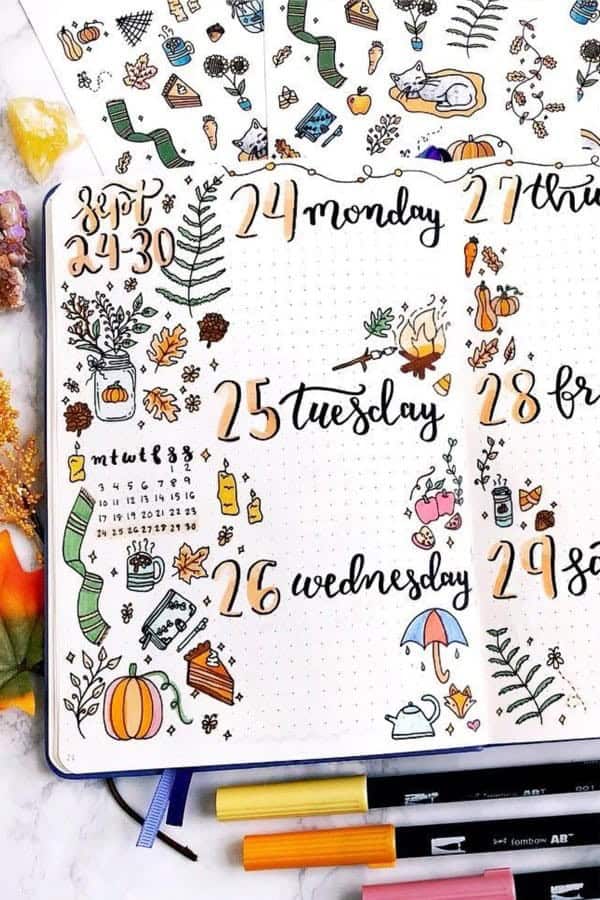 sept
24-30
m t w t f s s
1 2
3 4 5 6 7 8 9
10 11 12 13 14 15 16
17 18 19 20 21 22 23
24 25 26 27 28 29 30
24 monday
25 tuesday
26 wednesday
27 thu
28 fr
29 sa
AB
tombow AB